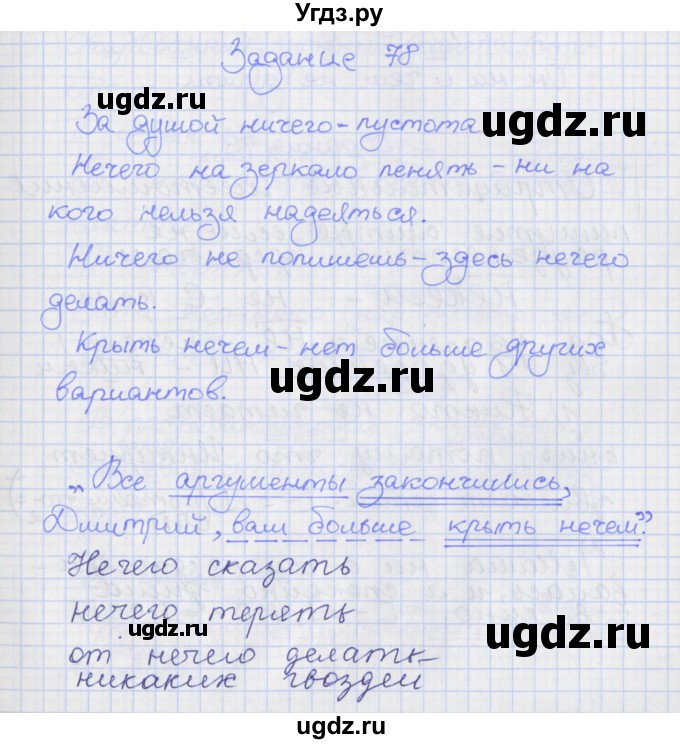 Угдз.ру
Задание 78
ugdz.ru
За душой ничего - пустота
ugdz.ru
Нечего на зеркало пенять - ни на
кого нельзя надеяться.
Ничего не попишешь - здесь нечего
делать.
Крыть нечем - нет больше других
ugdz.ru
вариантов.
„Все аргументы закончились,
Дмитрий, вам больше крыть нечем."
Нечего сказать
нечего терять
ugdz.ru
ugdz.ru
от нечего делать
никаких гвоздей
ugdz.ru